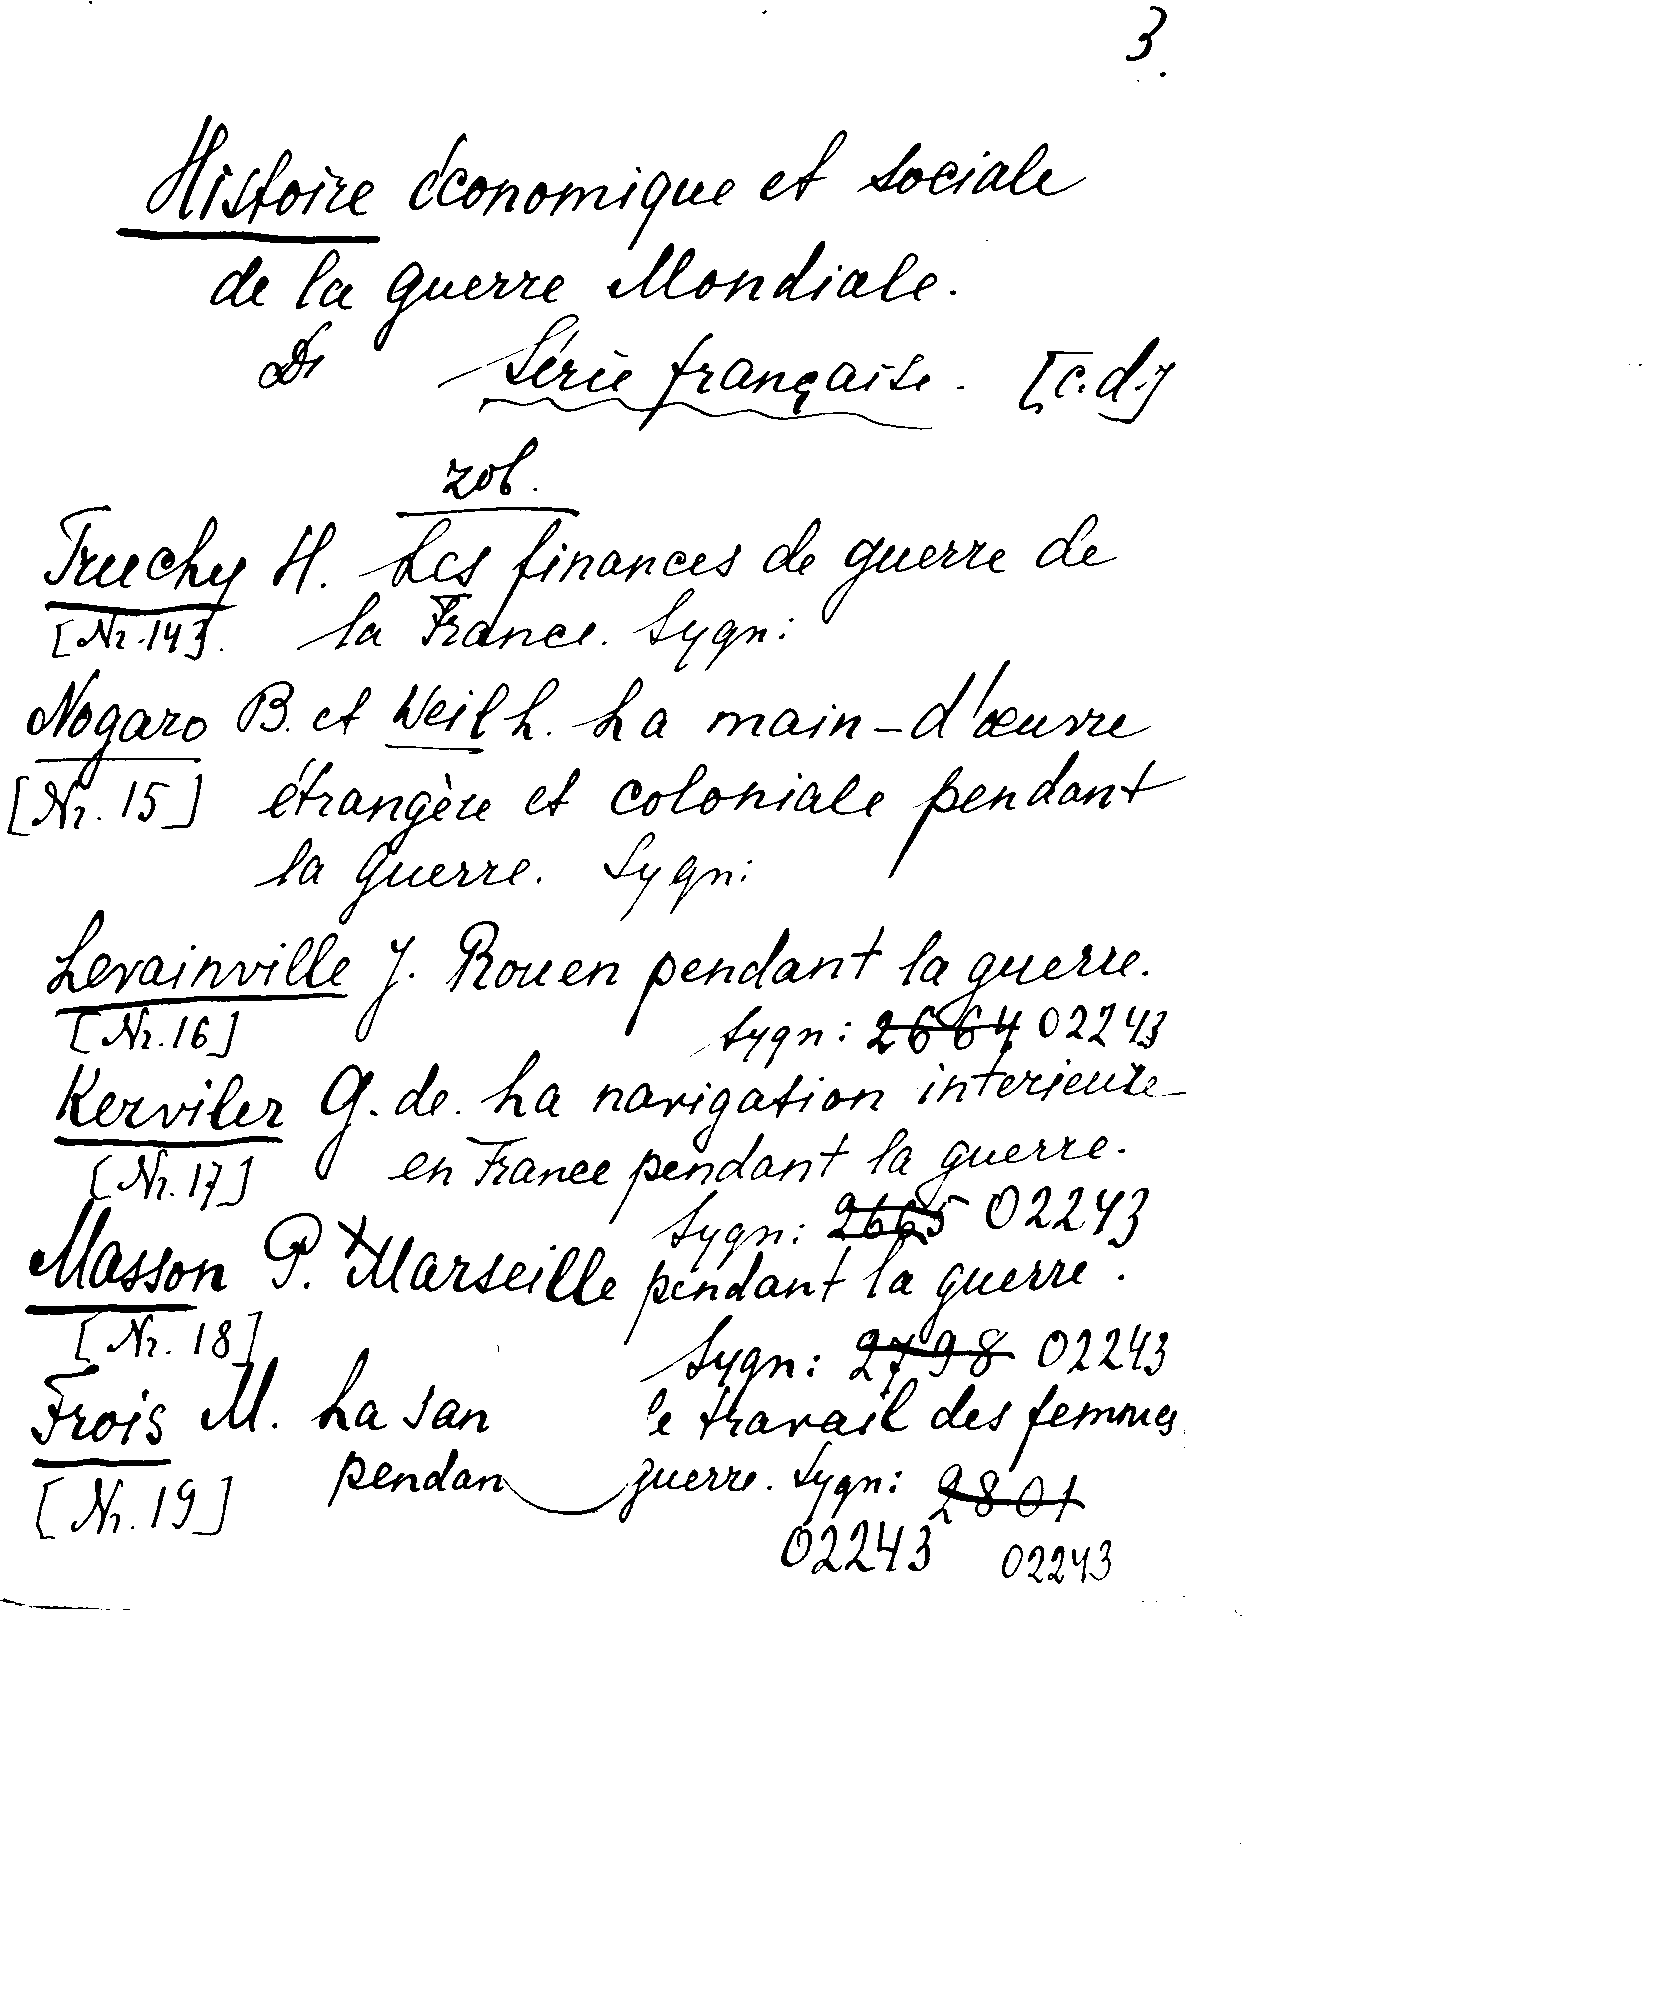 3.
Histoire économique et sociale
de la guerre Mondiale.
Série française. [c.d.]
zob.
Truchy H. Les finances de guerre de
[Nr. 14]. la France. Sygn:
Nogaro B. et Weil L. La main-d'œuvre
[Nr. 15] étrangère et coloniale pendant
la guerre. Sygn:
Levainville J. Rouen pendant la guerre.
[Nr. 16] Sygn: 2664 02243
Kerviler G. de. La navigation interieure
[Nr. 17] en France pendant la guerre.
Sygn: 2665 02243
Masson P. Marseille pendant la guerre.
[Nr. 18] Sygn: 2798 02243
Frois M. La san le travail des femmes
[Nr. 19] pendan guerre. Sygn: 2801
02243 02243